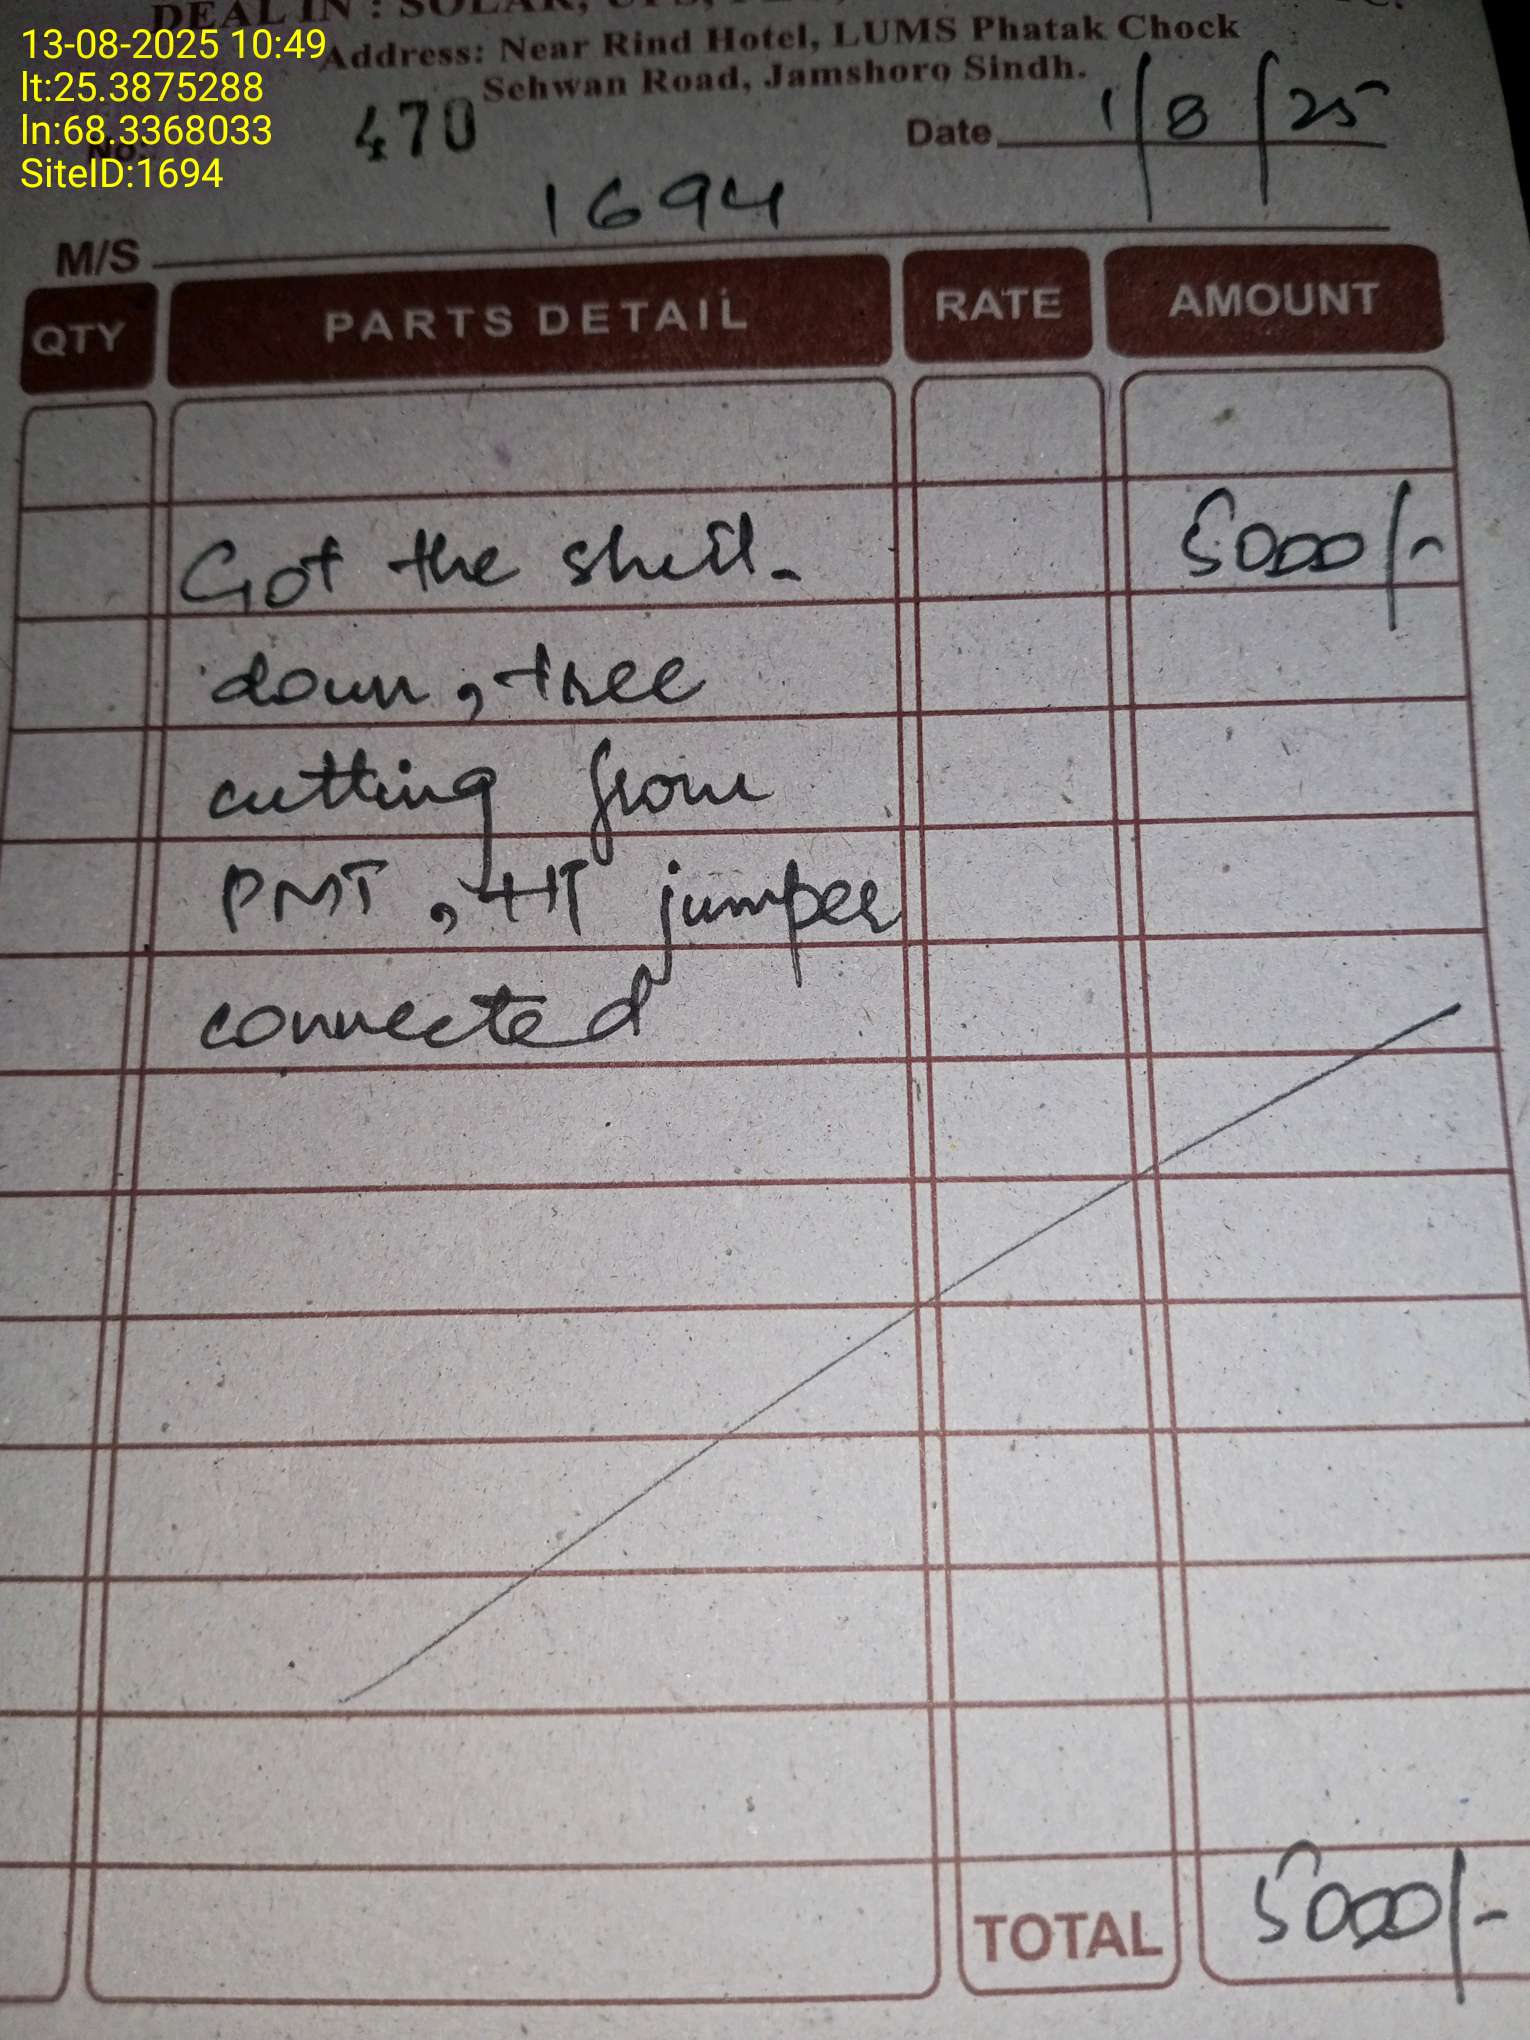 DEAL IN : SOLAR, UPS,
Address: Near Rind Hotel, LUMS Phatak Chock
Sehwan Road, Jamshoro Sindh.
13-08-2025 10:49
lt:25.3875288
ln:68.3368033
SiteID:1694
No: 470
Date 1/8/25
M/S 1694
QTY PARTS DETAIL RATE AMOUNT
Got the 5000/-
down, tree
cutting from
PMT, HT jumper
connected
TOTAL 5000/-